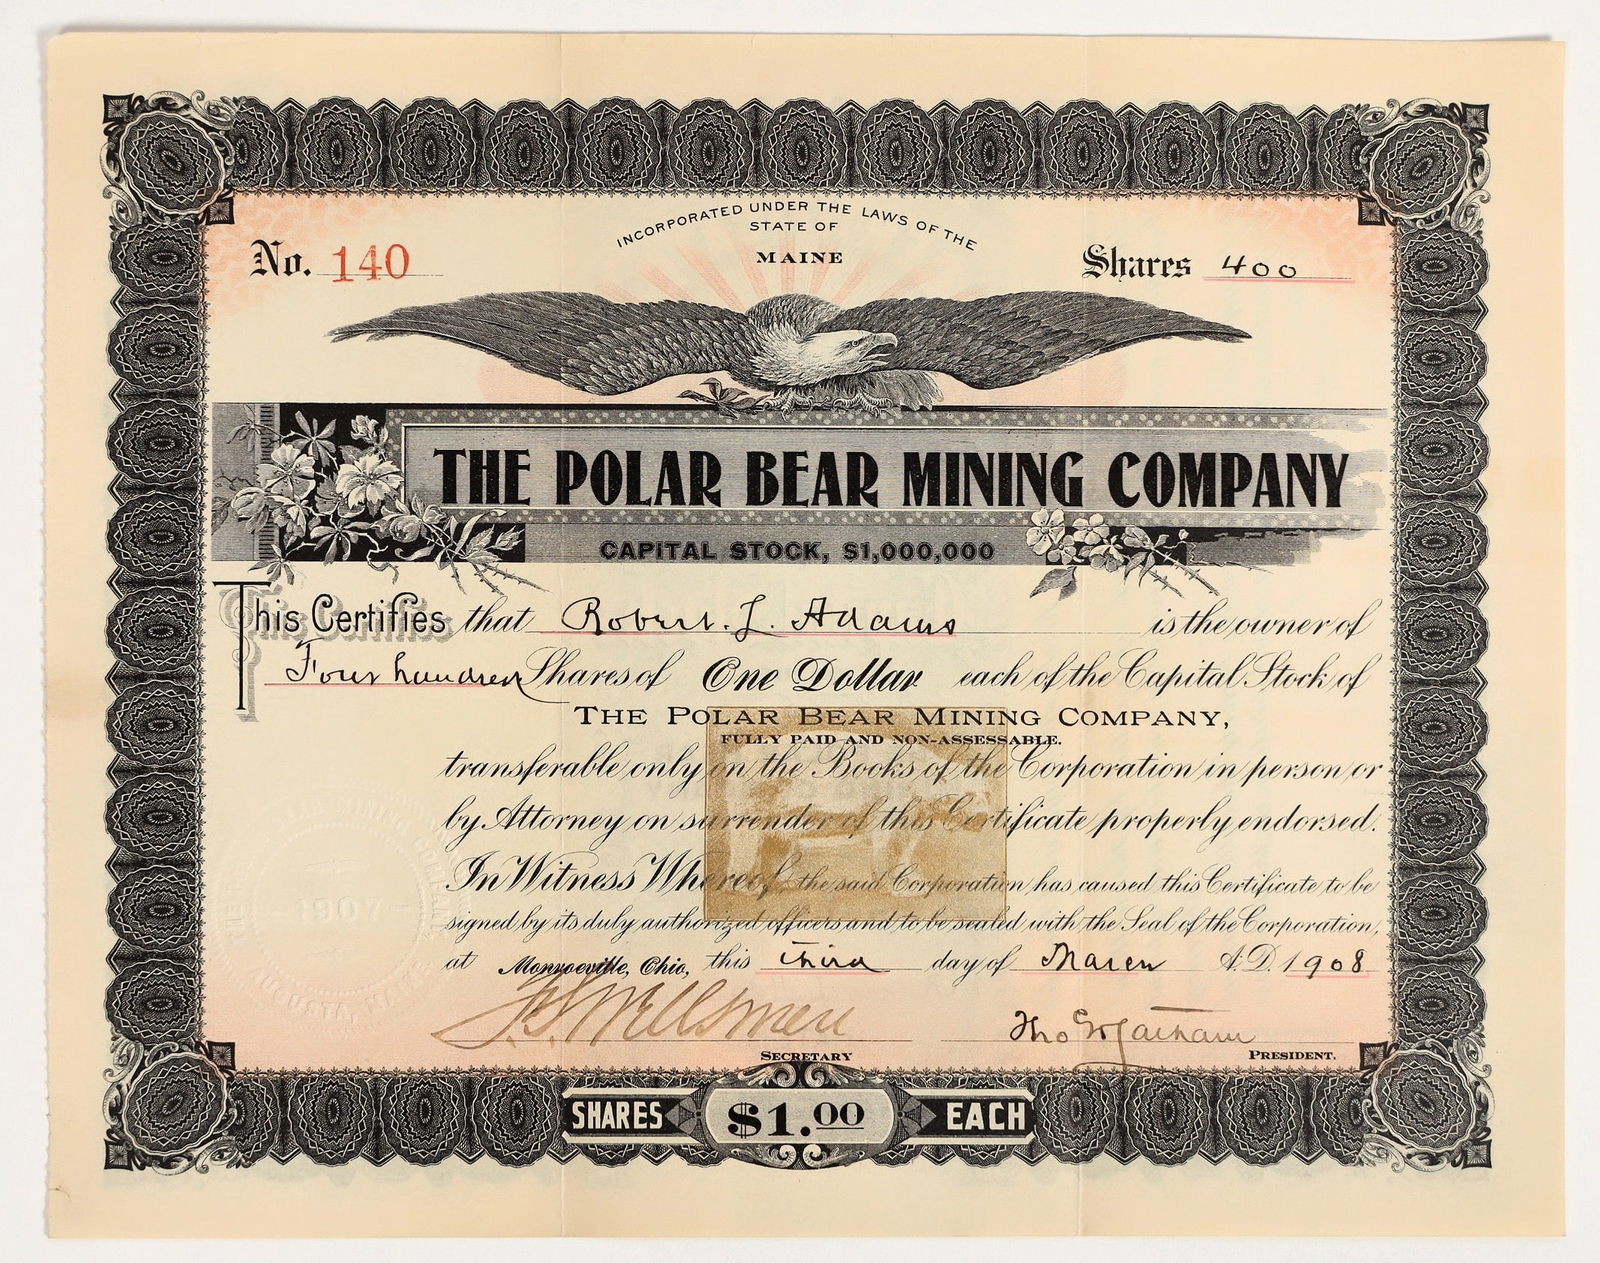 INCORPORATED UNDER THE LAWS OF THE
STATE OF
MAINE
No. 140
Shares 400
THE POLAR BEAR MINING COMPANY
CAPITAL STOCK, $1,000,000
This Certifies that Robert. L. Adams is the owner of
Four hundred Shares of One Dollar each of the Capital Stock of
THE POLAR BEAR MINING COMPANY,
FULLY PAID AND NON-ASSESSABLE.
transferable only on the Books of the Corporation in person or
by Attorney on surrender of this Certificate properly endorsed.
In Witness Whereof, the said Corporation has caused this Certificate to be
signed by its duly authorized officers and to be sealed with the Seal of the Corporation,
at Monroeville, Ohio, this Third day of March A.D. 1908
SECRETARY
PRESIDENT.
MINING COMPANY
1907
AUGUSTA, MAINE
SHARES $1.00 EACH